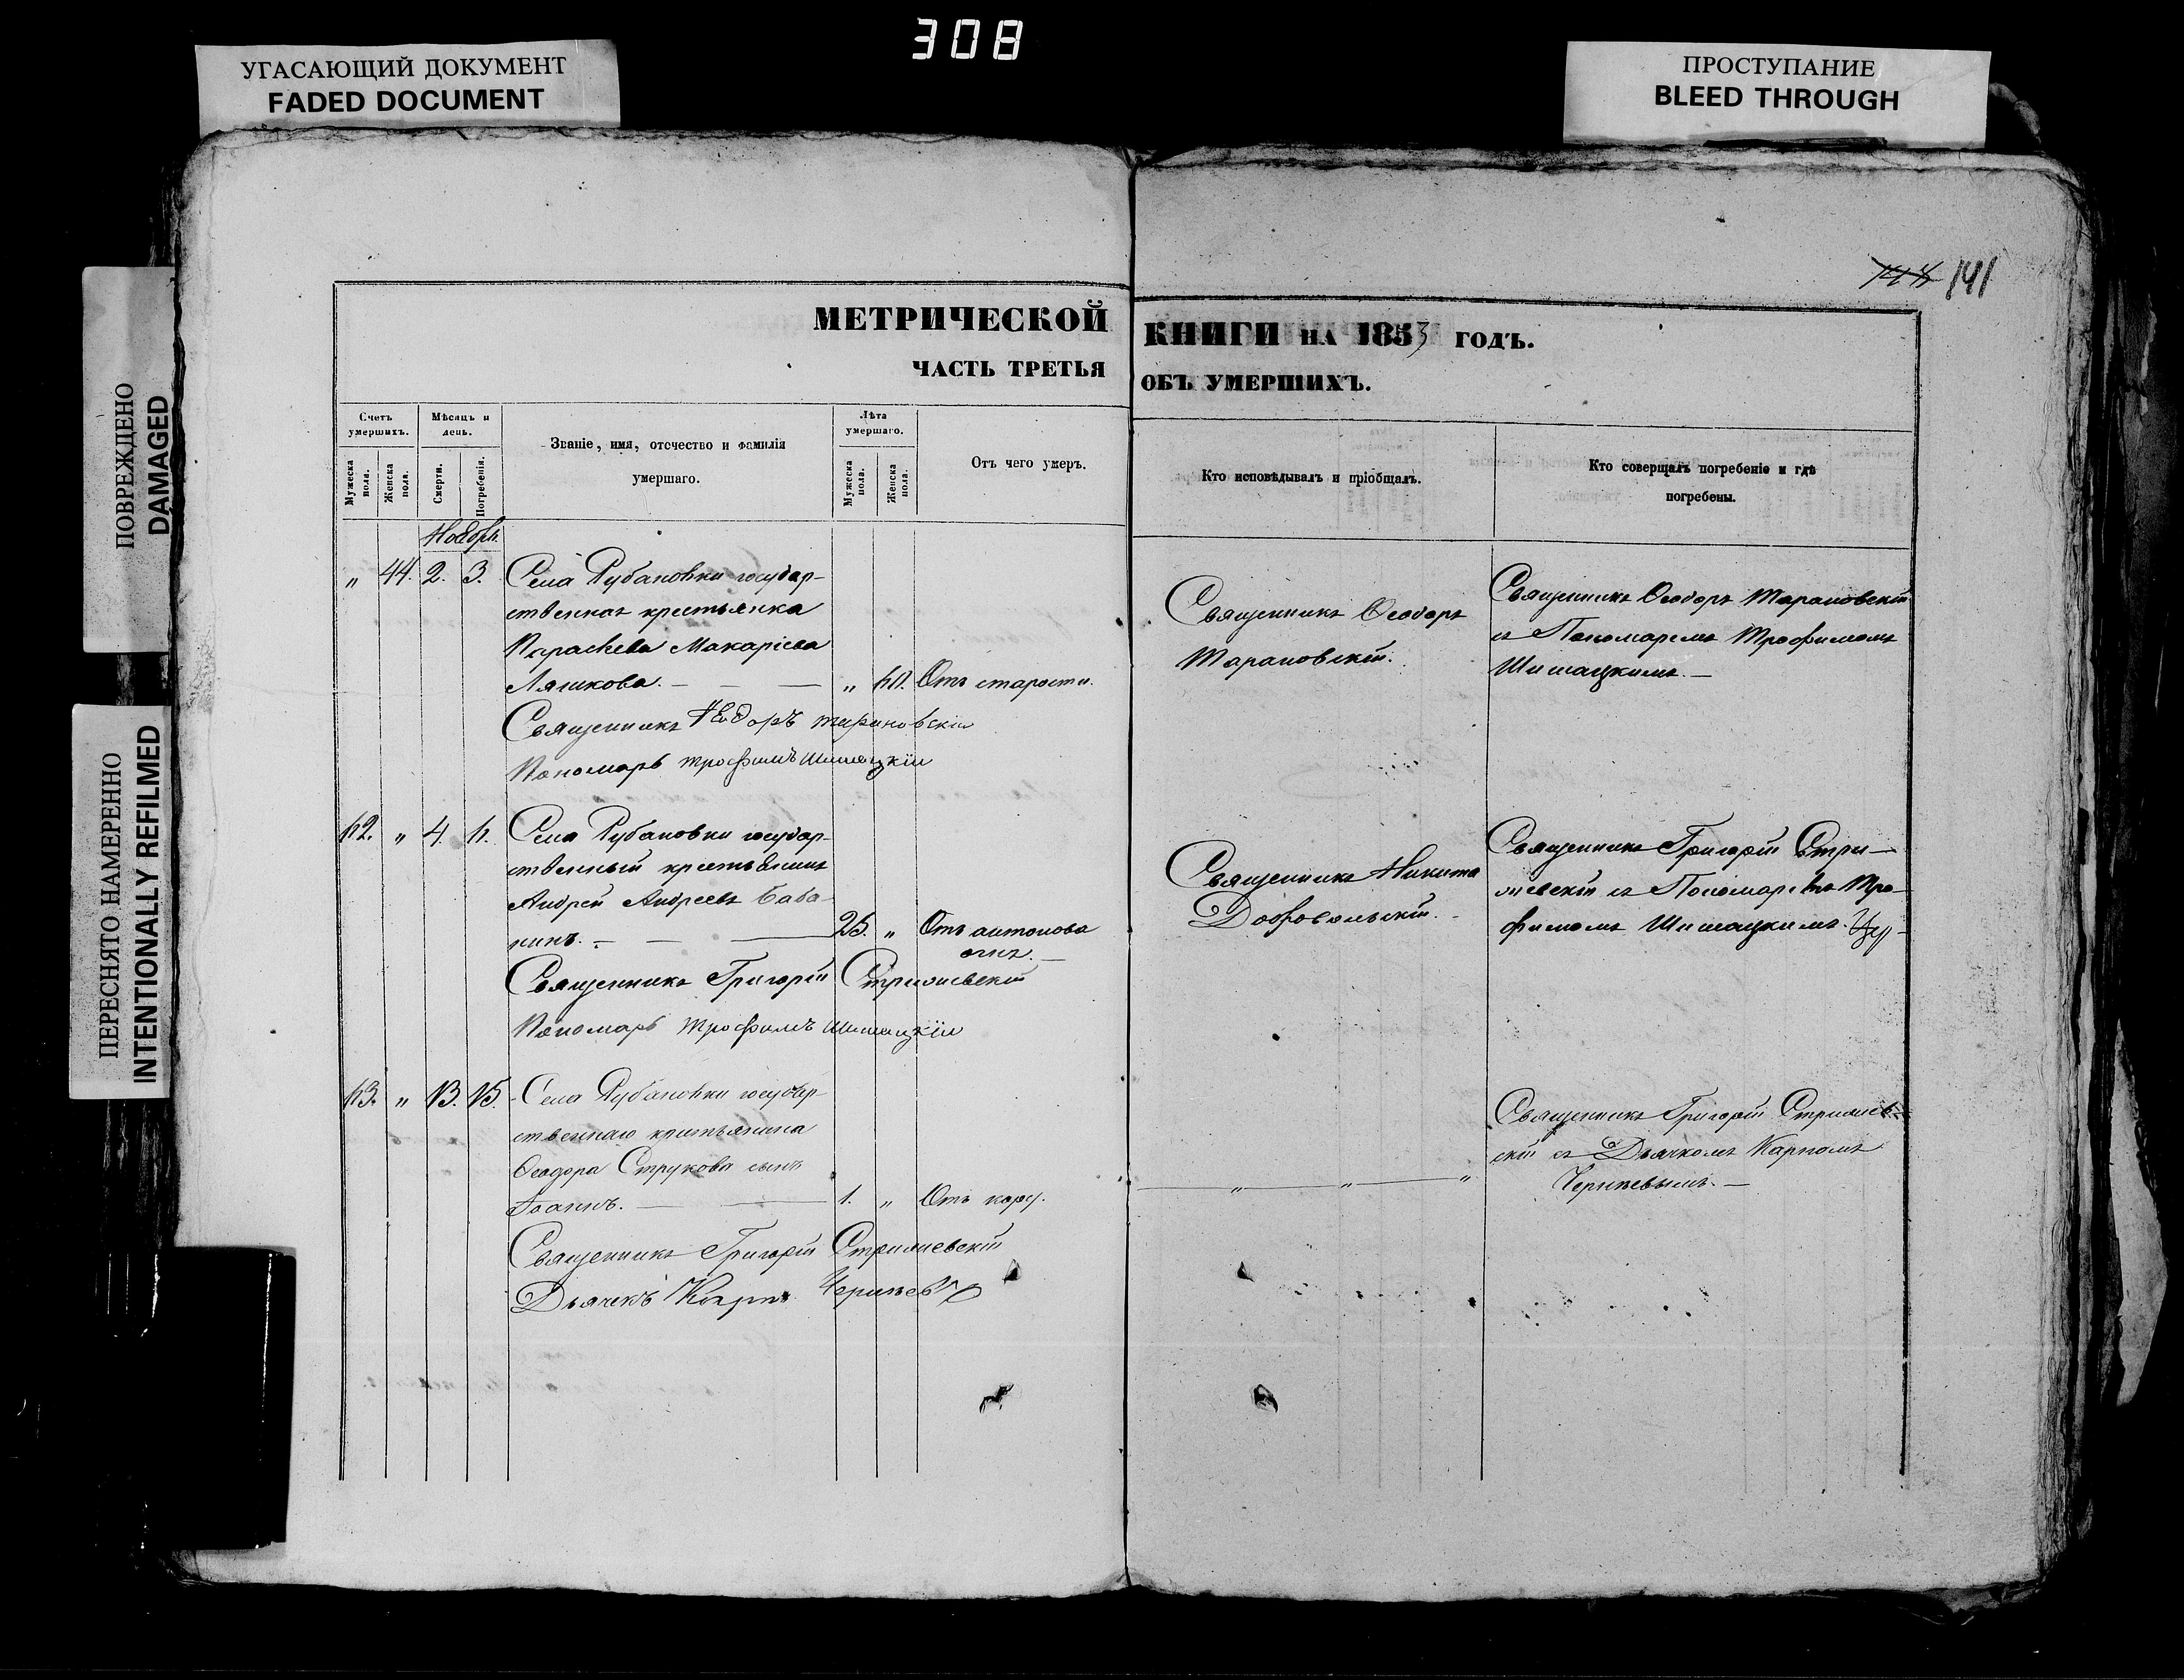 308
УГАСАЮЩИЙ ДОКУМЕНТ
FADED DOCUMENT
ПРОСТУПАНИЕ
BLEED THROUGH
ПОВРЕЖДЕНО
DAMAGED
ПЕРЕСНЯТО НАМЕРЕННО
INTENTIONALLY REFILMED
141
МЕТРИЧЕСКОЙ КНИГИ НА 1853 ГОДЪ.
ЧАСТЬ ТРЕТЬЯ ОБЪ УМЕРШИХЪ.
Счетъ умершихъ.
Мужеска пола.
Женска пола.
Мѣсяцъ и день.
Смерти.
Погребенія.
Званіе, имя, отечество и фамилія
умершаго.
Лѣта умершаго.
Мужеска пола.
Женска пола.
Отъ чего умеръ.
Кто исповѣдывалъ и пріобщалъ.
Кто совершалъ погребеніе и гдѣ
погребены.
Ноября.
„ 44. 2. 3. Села Рубановки государ-
ственная крестьянка
Параскева Макаріева
Ляшкова. — „ 60. Отъ старости.
Священникъ Феодоръ Тарановскій
Пономарь Трофимъ Шишацкій
Священникъ Ѳеодоръ
Тарановскій.
Священникъ Ѳеодоръ Тарановскій
съ Пономаремъ Трофимомъ
Шишацкимъ. —
62. „ 4. 6. Села Рубановки государ-
ственный крестьянинъ
Андрей Андреевъ Баба-
нинъ. — 25. „ Отъ антонова
огня. —
Священникъ Григорій Стрилевскій
Пономарь Трофимъ Шишацкій
Священникъ Никита
Добровольскій. -
Священникъ Григорій Стри-
левскій съ Пономаремъ Тро-
фимомъ Шишацкимъ.
63. „ 13. 15. Села Рубановки государ-
ственнаго крестьянина
Ѳеодора Струкова сынъ
Іоаннъ. — 1. „ Отъ кору.
Священникъ Григорій Стрилевскій
Дьячекъ Карпъ
„ „ „
Священникъ Григорій Стрилев-
скій съ Дьячкомъ Карпомъ